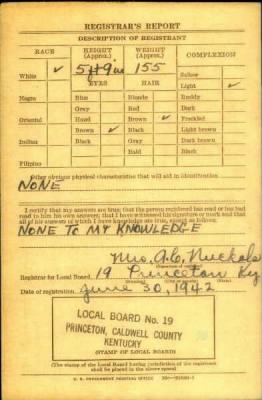 REGISTRAR'S REPORT
DESCRIPTION OF REGISTRANT
RACE HEIGHT (Approx.) WEIGHT (Approx.) COMPLEXION
White ✓ 5 ft 9 in 155 Sallow
EYES HAIR Light ✓
Negro Blue Blonde Ruddy
Gray Red Dark
Oriental Hazel Brown ✓ Freckled
Brown ✓ Black Light brown
Indian Black Gray Dark brown
Bald Black
Filipino
Other obvious physical characteristics that will aid in identification
NONE
I certify that my answers are true; that the person registered has read or has had
read to him his own answers; that I have witnessed his signature or mark and that
all of his answers of which I have knowledge are true, except as follows:
NONE TO MY KNOWLEDGE
Mrs. A.C. Nuckols
Registrar for Local Board 19 Princeton Ky
Date of registration June 30, 1942
LOCAL BOARD No. 19
PRINCETON, CALDWELL COUNTY
KENTUCKY
(STAMP OF LOCAL BOARD)
(The stamp of the Local Board having jurisdiction of the registrant
shall be placed in the above space)
U. S. GOVERNMENT PRINTING OFFICE